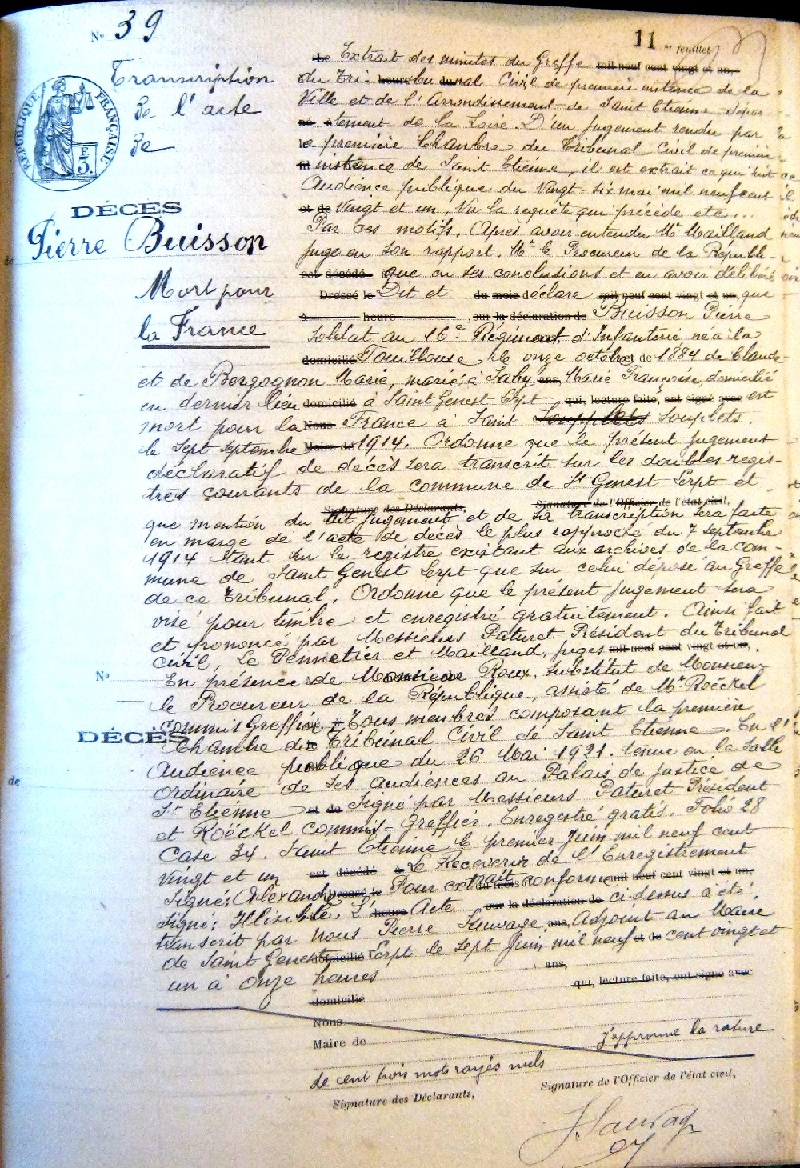 N° 39
11 me feuillet
RÉPUBLIQUE FRANÇAISE
Transcription
de l'acte
de
DÉCÈS
Pierre Buisson
Mort pour
la France
Extrait des minutes du Greffe
du Tribunal Civil de première instance de la
Ville et de l'Arrondissement de Saint Etienne Dépar
tement de la Loire. D'un jugement rendu par
la première Chambre du Tribunal Civil de première
instance de Saint Etienne, il est extrait ce qui suit
Audience publique du Vingt-six mai mil neuf cent
Vingt et un, Vu la requête qui précède etc...
Par ces motifs. Après avoir entendu Mr Mailland
juge en son rapport. Mr le Procureur de la Républi-
que en ses conclusions et en avoir délibéré
Dit et déclare que
Buisson Pierre
Soldat au 16e Régiment d'Infanterie né à la
Tourlhouse le onze octobre 1884 de Claude
et de Borgognon Marie, marié à Faby Marie Françoise, domicilié
en dernier lieu à Saint Genest Lerpt est
mort pour la France à Saint Soupplets
le sept septembre 1914. Ordonne que le présent jugement
déclaratif de décès sera transcrit sur les doubles regis-
tres courants de la commune de St Genest Lerpt et
que mention du dit jugement et de sa transcription sera faite
en marge de l'acte de décès le plus rapproché du 7 septembre
1914 tant sur le registre existant aux archives de la com-
mune de Saint Genest Lerpt que sur celui déposé au Greffe
de ce Tribunal. Ordonne que le présent jugement sera
visé pour timbre et enregistré gratuitement. Ainsi fait
et prononcé par Messieurs Paturet Président du Tribunal
Civil, Le Pennetier et Mailland, juges
N° En présence de Monsieur Roux, Substitut de Monsieur
le Procureur de la République, assisté de Mr Roëckel
commis Greffier Tous membres composant la première
DÉCÈS Chambre du Tribunal Civil de Saint Etienne. En l'
Audience publique du 26 Mai 1921. tenue en la Salle
de Ordinaire de ses audiences au Palais de justice de
St Etienne Signé par Messieurs Paturet Président
et Roëckel commis-Greffier. Enregistré gratis. Folio 28
Case 34. Saint Etienne le premier Juin mil neuf cent
vingt et un Le Receveur de l'Enregistrement
Signé: Alexandre Pour extrait conforme
signé: Illisible. L'Acte ci-dessus a été
transcrit par nous Pierre Sauvage, Adjoint au Maire
de Saint Genest Lerpt le sept Juin mil neuf cent vingt et
un à onze heures
ans,
qui, lecture faite, ont signé avec
domicilié
Nous
Maire de
J'approuve la rature
de cent trois mots rayés nuls
Signature des Déclarants,
Signature de l'Officier de l'état civil,
J Sauvage